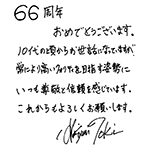 66周年
おめでとうございます。
10代の頃からお世話になっていますが
常により高いクォリティを目指す姿勢に
いつも尊敬と信頼を感じています。
これからもよろしくお願いします。